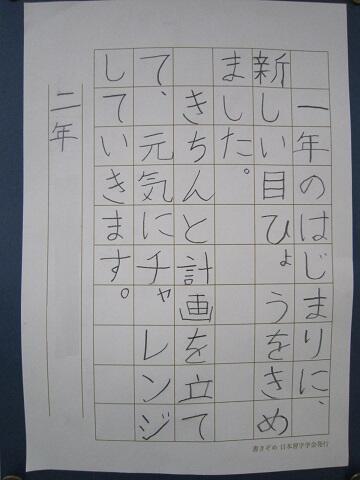 一年のはじまりに、
新しい目ひょうをきめ
ました。
きちんと計画を立て
て、元気にチャレンジ
していきます。
二年
書きぞめ 日本習字学会発行